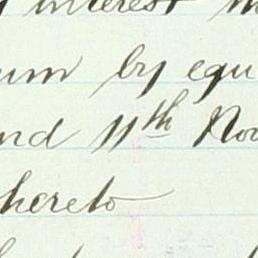 interest
um by equ
nd 11th Nov
hereto